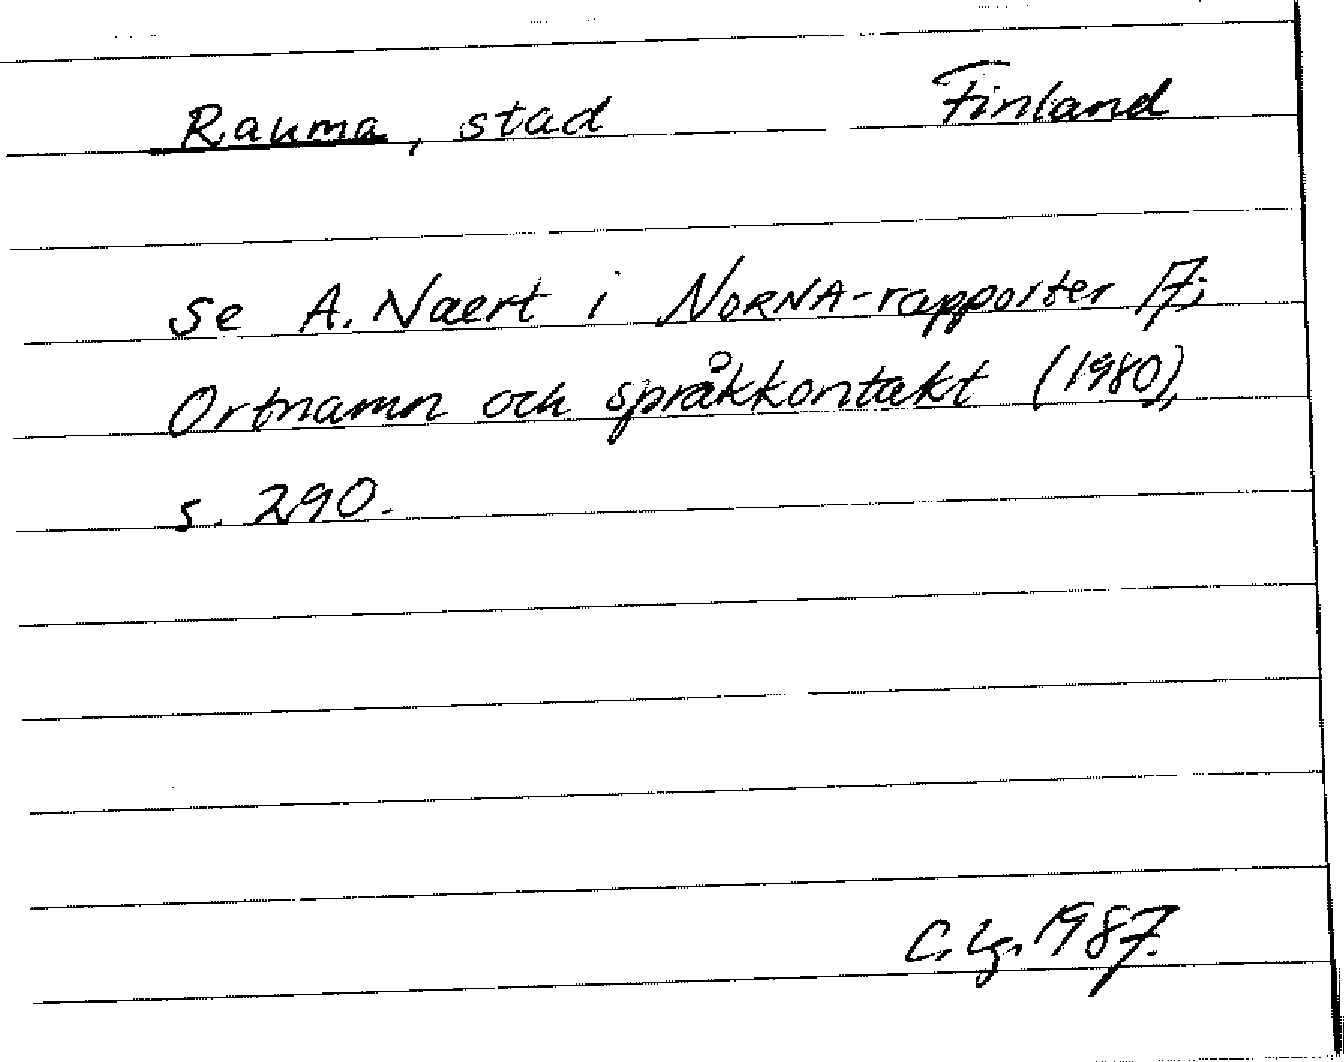 Rauma, stad Finland
se A. Naert i NORNA-rapporter 17;
Ortnamn och språkkontakt (1980),
s. 290.
C. Lg. 1987.